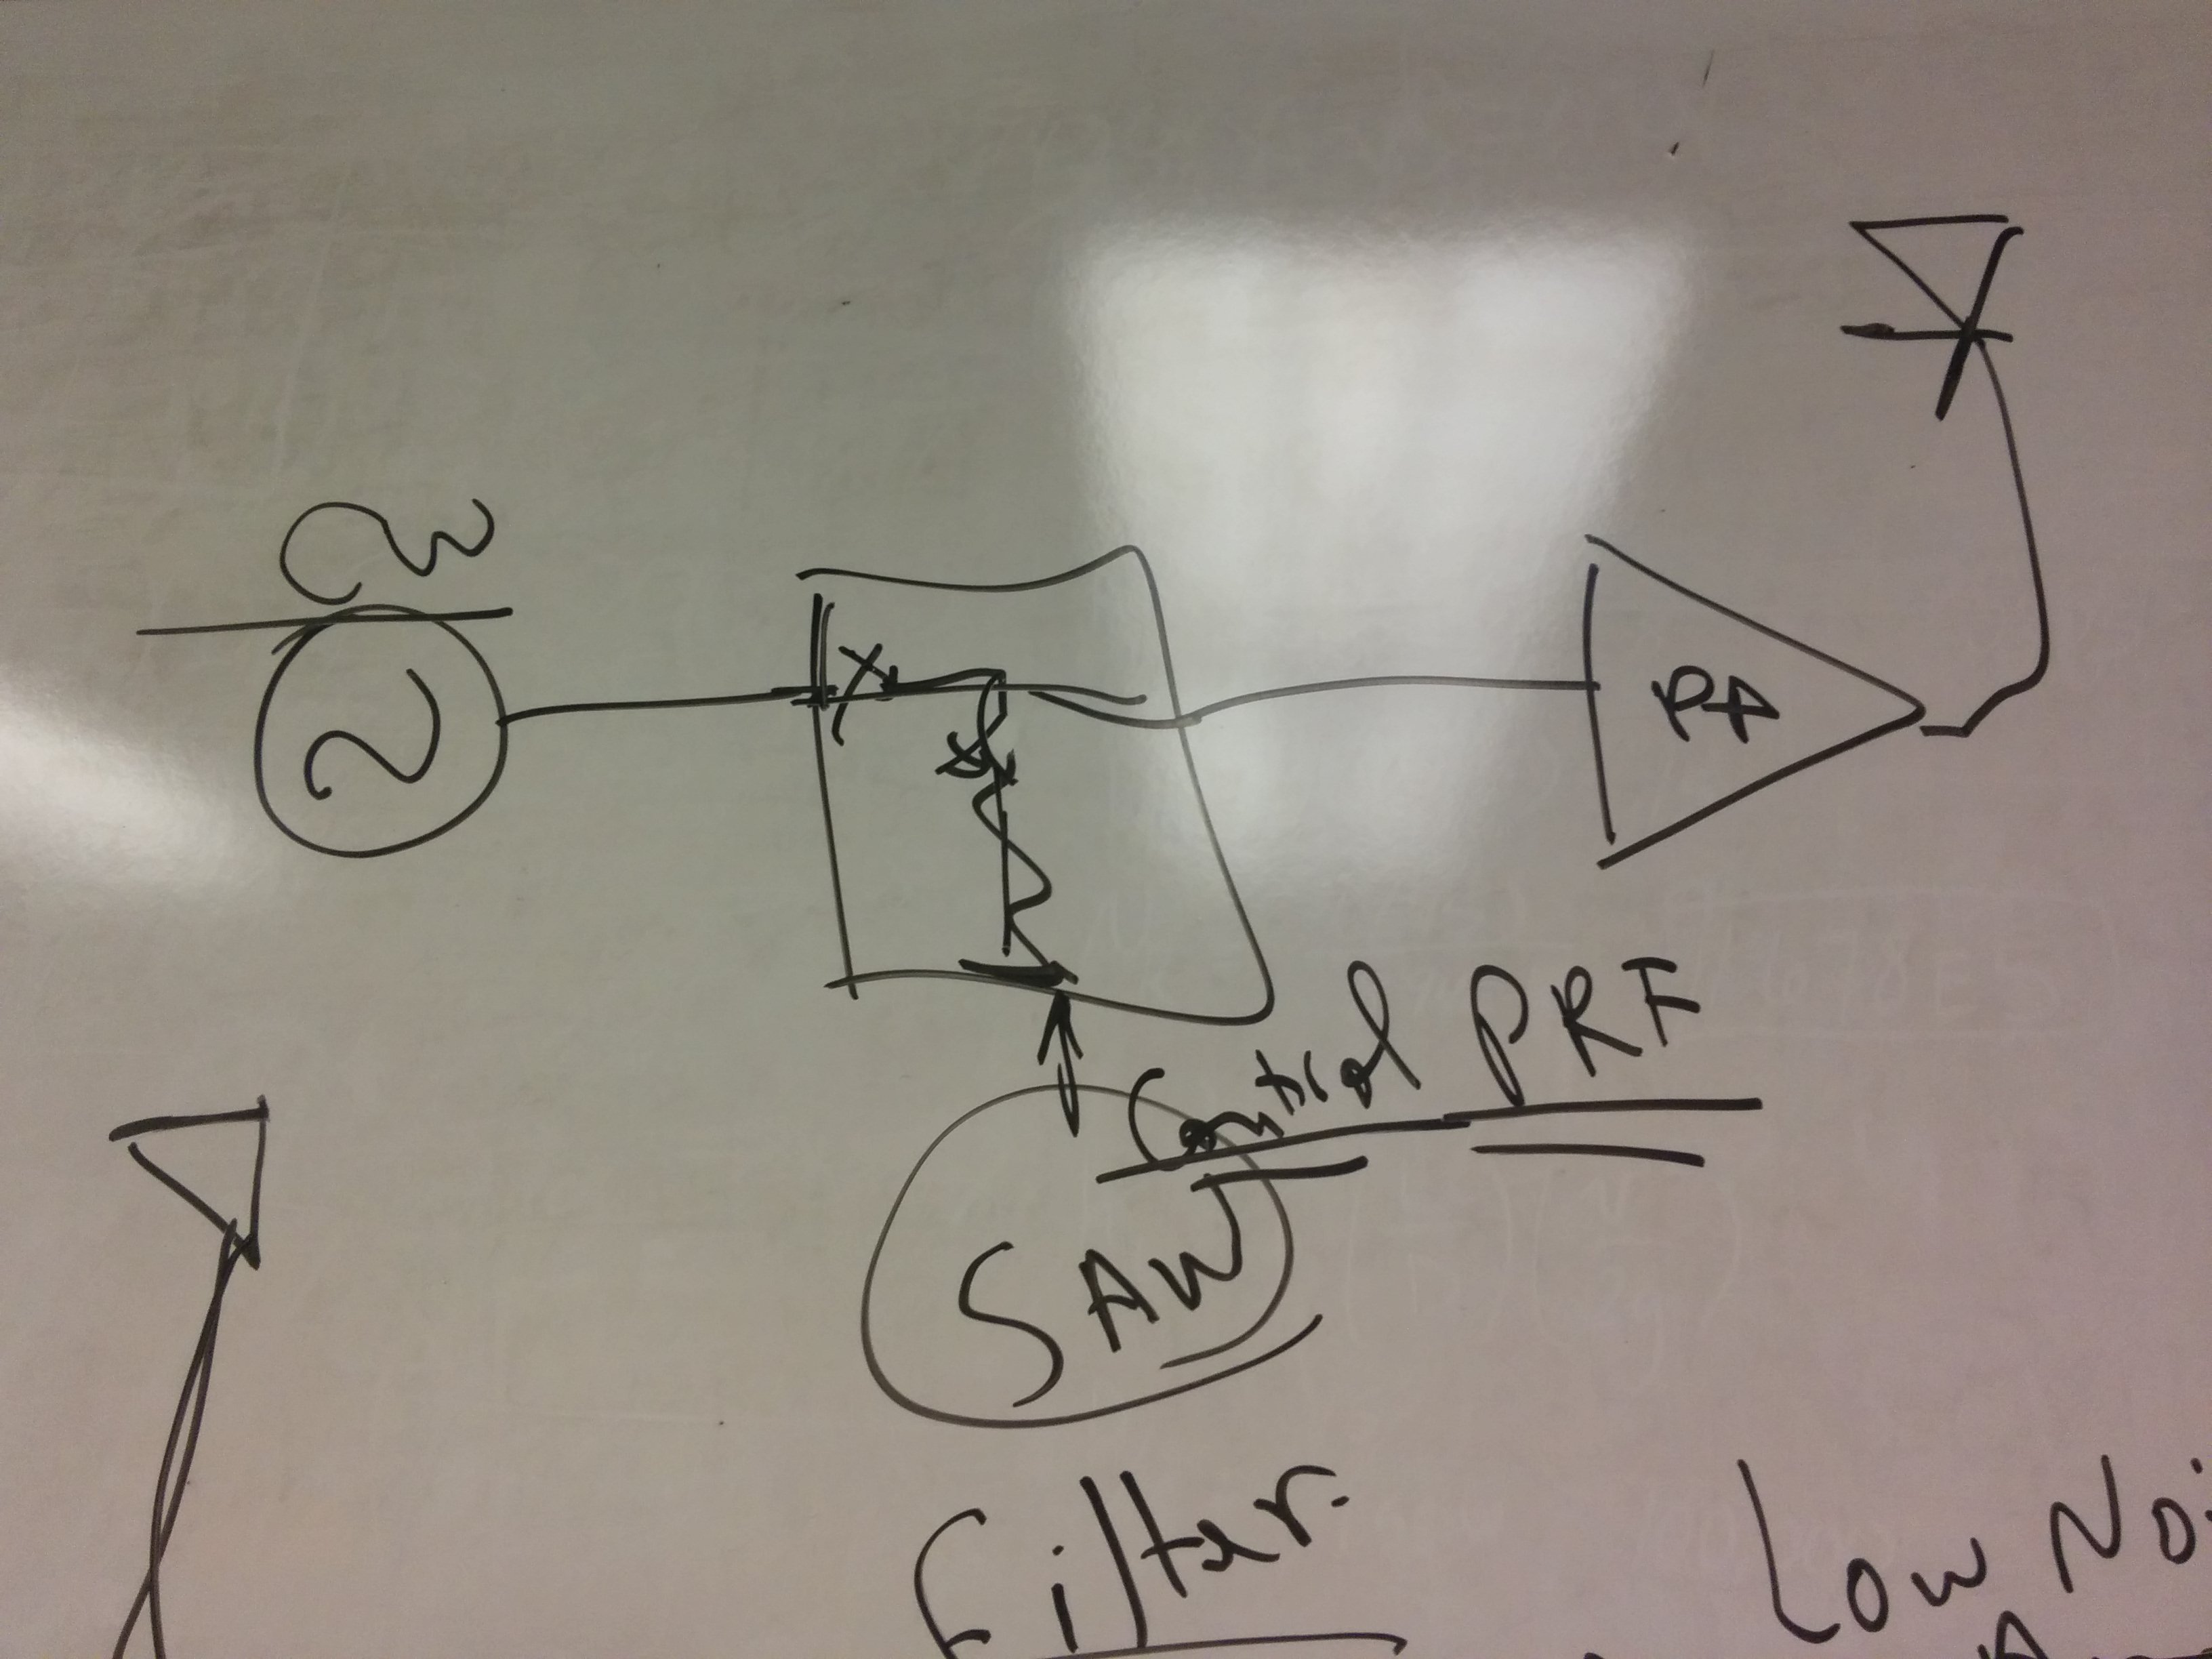 CW
PA
Control PRF
SAW
Filter.
Low Noi